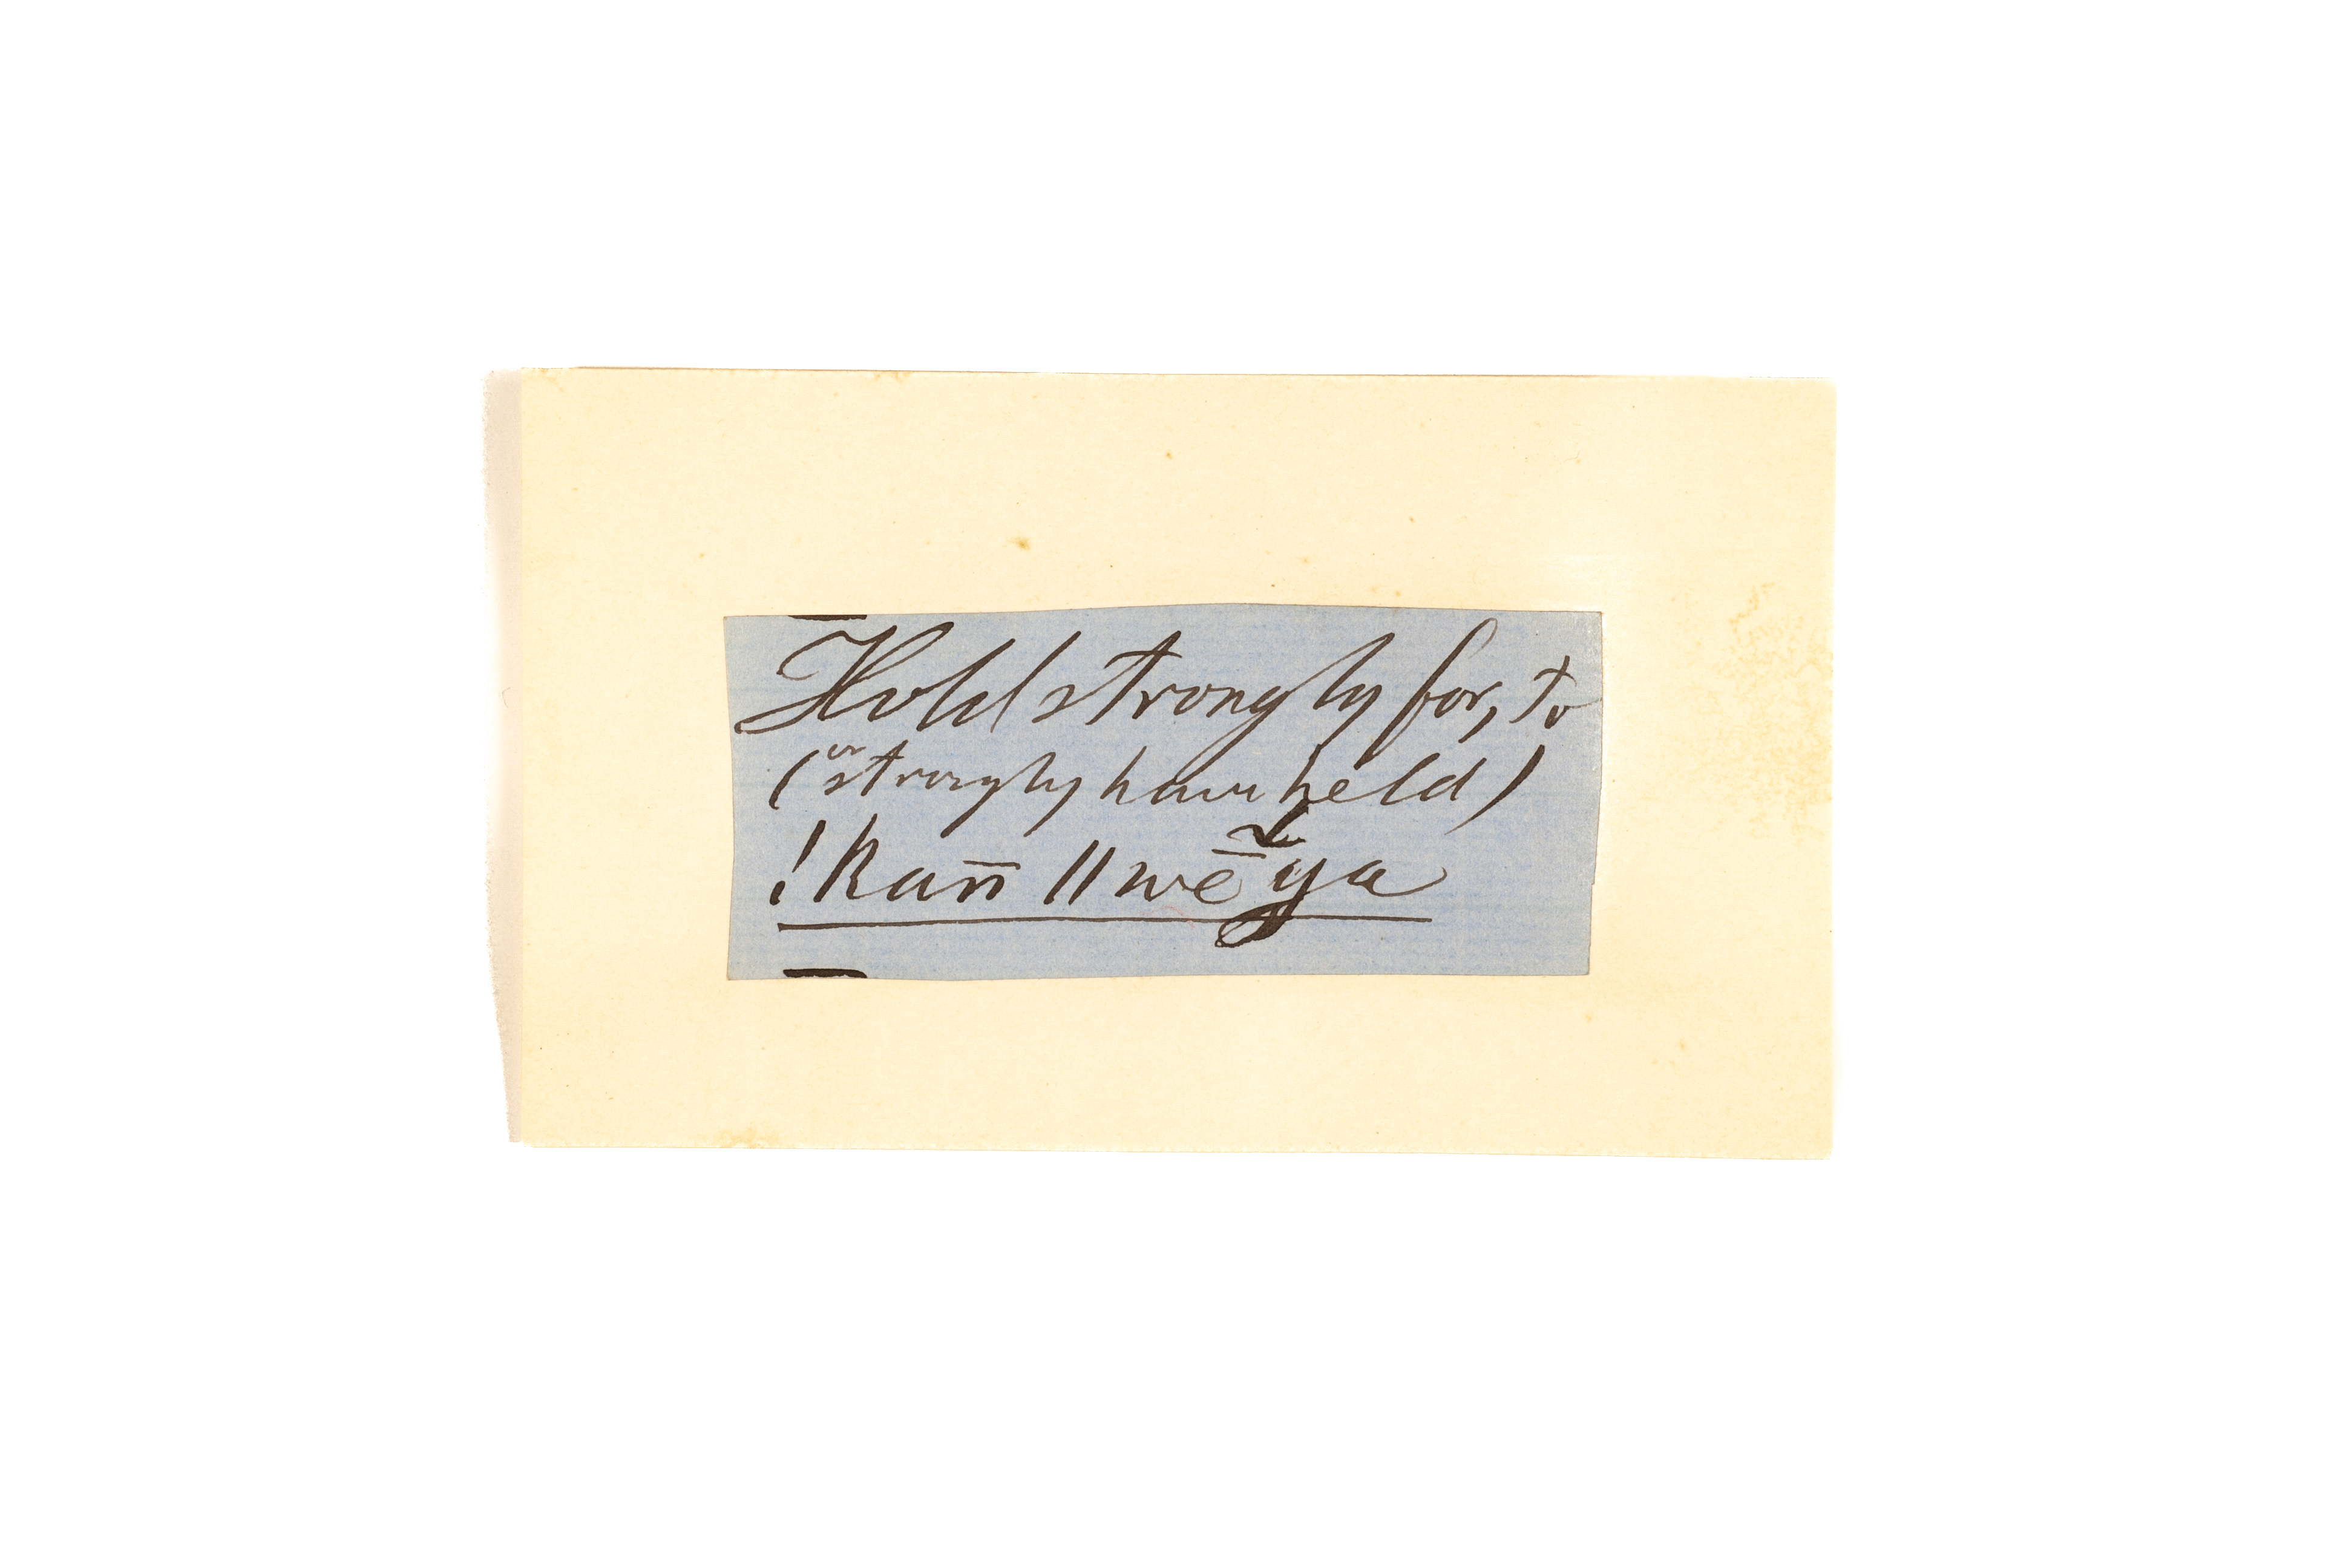 Hold strongly for, to
(or strongly have held)
!kann̄ ǁwē̆ya